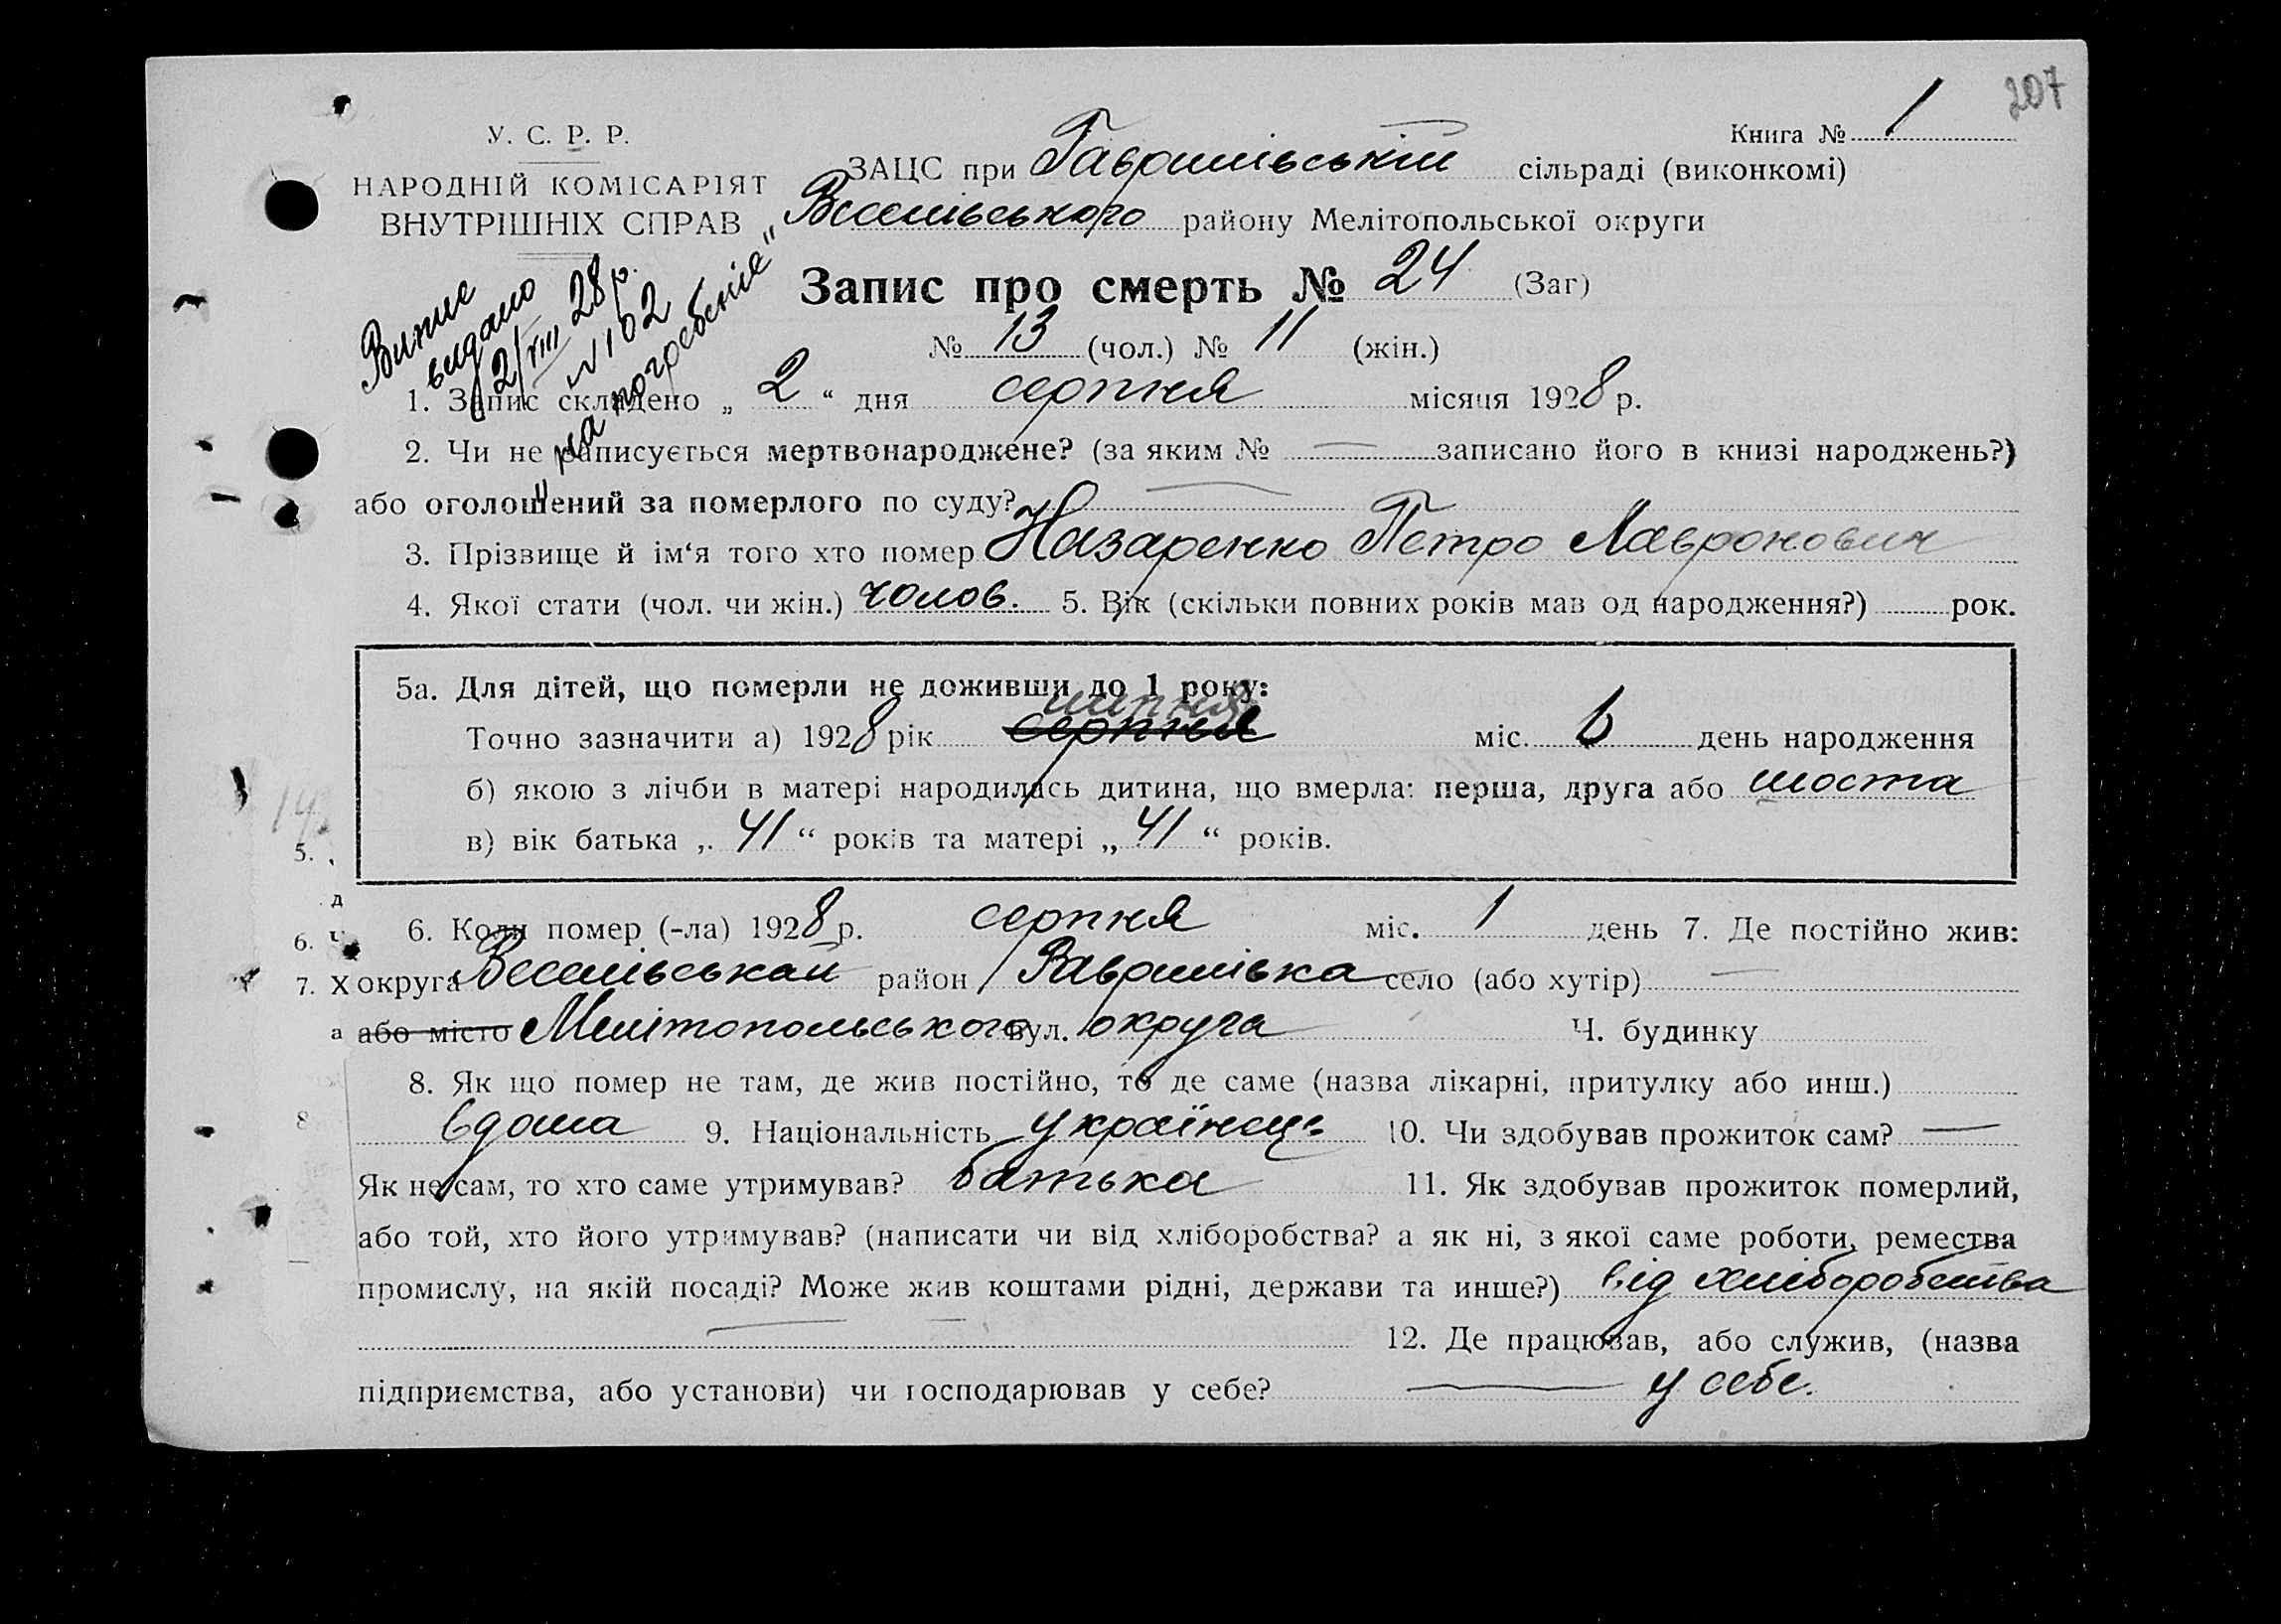 207
У. С. Р. Р.
Книга № 1
НАРОДНІЙ КОМІСАРІЯТ
ВНУТРІШНІХ СПРАВ
ЗАЦС при Гаврилівській сільраді (виконкомі)
Веселівського району Мелітопольської округи
Випис
видано
2/VIII 28 р.
№ 102
"на погребеніе"
Запис про смерть № 24 (Заг)
№ 13 (чол.) № 11 (жін.)
1. Запис складено „ 2 “ дня серпня місяця 1928 р.
2. Чи не записується мертвонароджене? (за яким № — записано його в книзі народжень?)
або оголошений за померлого по суду? —
3. Прізвище й ім‘я того хто помер Назаренко Петро Лавронович
4. Якої стати (чол. чи жін.) чолов. 5. Вік (скільки повних років мав од народження?) рок.
5а. Для дітей, що померли не доживши до 1 року:
липня
Точно зазначити а) 1928 рік серпня міс. 6 день народження
б) якою з лічби в матері народилась дитина, що вмерла: перша, друга або шоста
в) вік батька „ 41 “ років та матері „ 41 “ років.
14.
5.
д
6. Коли помер (-ла) 1928 р. серпня міс. 1 день 7. Де постійно жив:
6. Ч
7. Х округа Веселівськай район Гаврилівка село (або хутір) —
а або місто Мелітопольського вул. округа Ч. будинку
8. Як що помер не там, де жив постійно, то де саме (назва лікарні, притулку або инш.)
8
вдома 9. Національність українець 10. Чи здобував прожиток сам? —
Як не сам, то хто саме утримував? батька 11. Як здобував прожиток померлий,
або той, хто його утримував? (написати чи від хліборобства? а як ні, з якої саме роботи, ремества
промислу, на якій посаді? Може жив коштами рідні, держави та инше?) від хліборобства
12. Де працював, або служив, (назва
підприємства, або установи) чи господарював у себе? — у себе.